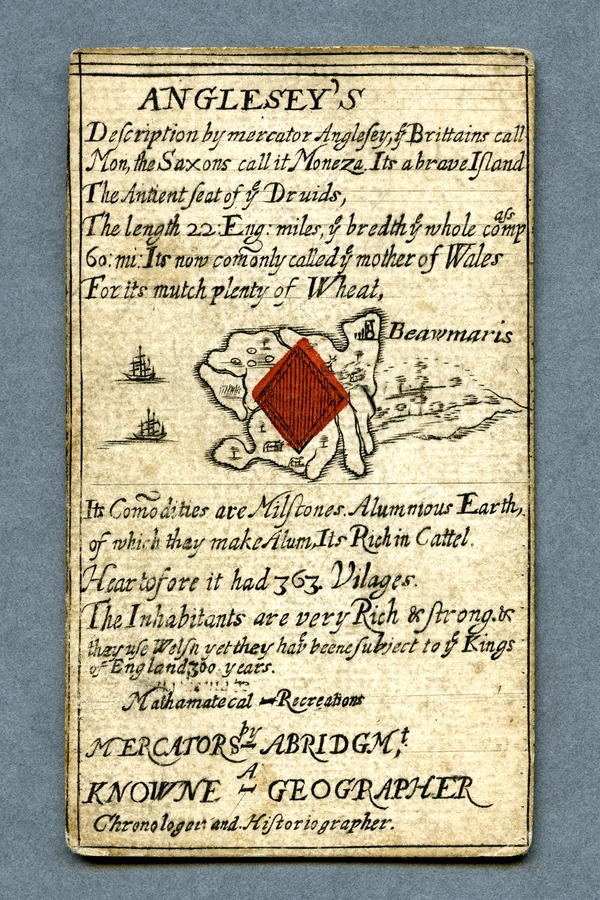 ANGLESEY'S
Deſcription by mercator Angleſey, yͤ Brittains call
Mon, the Saxons call it Moneza. Its a brave Iſland
The Antient ſeat of yͤ Druids,
The length 22: Eng: miles, yͤ bredth yͤ whole compaſs
60: mi: Its now com̃only called yͤ mother of Wales
For its mutch plenty of Wheat,
Beawmaris
Its Com̃odities are Milſtones. Alumnious Earth,
of which thay make Alum, Its Rich in Cattel.
Heartofore it had 363. Vilages.
The Inhabitants are very Rich & ſtrong. &
thay uſe Welſh yet they have beene ſubiect to yͤ Kings
of England 300 years.
Mathamatecal Recreations
by
MERCATORS ABRIDGMͭ,
A
KNOWNE GEOGRAPHER
Chronologer and Hiſtoriographer.